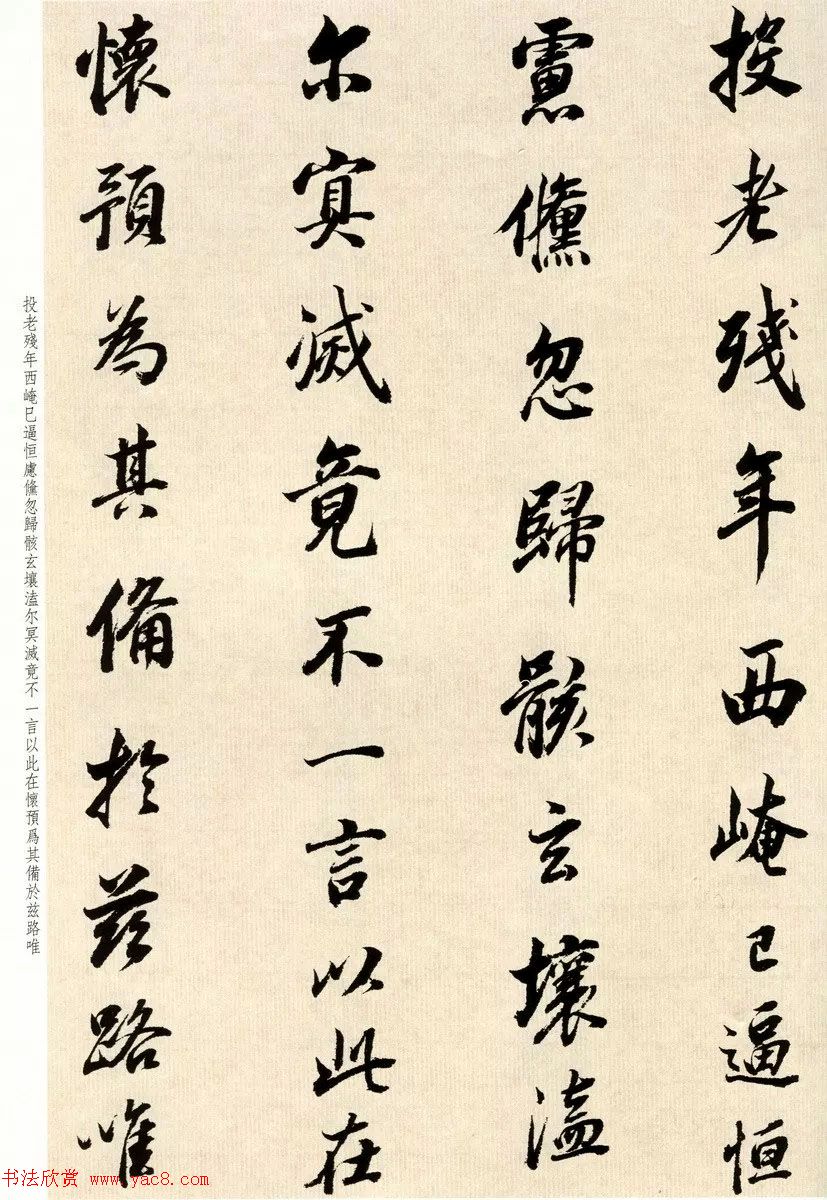 投老殘年西崦已逼恒
慮儵忽歸骸玄壤溘
尔冥滅竟不一言以此在
懷預為其備於茲路唯
投老殘年西崦已逼恒慮儵忽歸骸玄壤溘尔冥滅竟不一言以此在懷預爲其備於茲路唯
书法欣赏 www.yac8.com